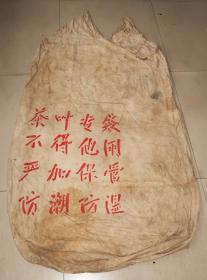 茶叶专袋
不得他用
严加保管
防潮防湿